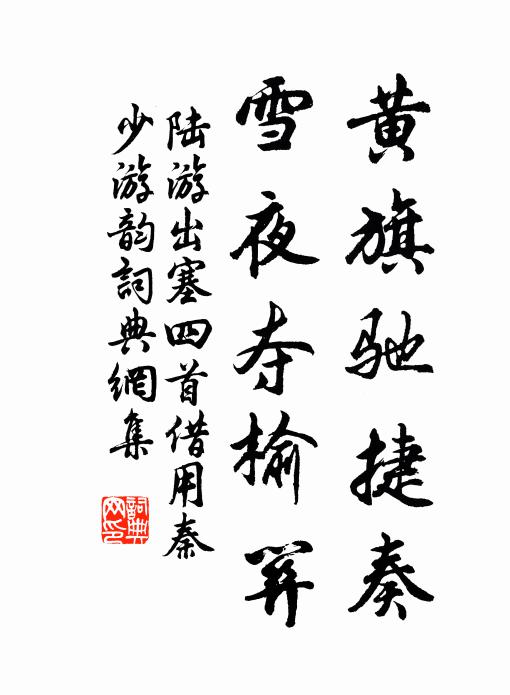 黄旗驰捷奏
雪夜夺榆關
陆游出塞四首借用秦
少游韵詞典網集
詞典網印